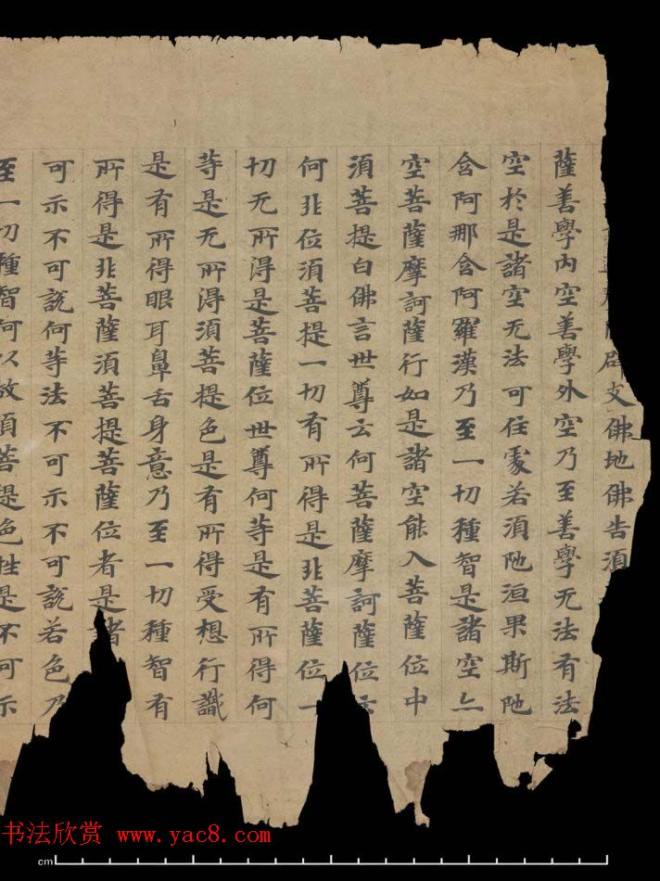 辟支佛地佛告須
薩善學內空善學外空乃至善學无法有法
空於是諸空无法可住處若須陁洹果斯陁
含阿那含阿羅漢乃至一切種智是諸空亦
空菩薩摩訶薩行如是諸空能入菩薩位中
須菩提白佛言世尊云何菩薩摩訶薩位云
何非位須菩提一切有所得是非菩薩位一
切无所得是菩薩位世尊何等是有所得何
等是无所得須菩提色是有所得受想行識
是有所得眼耳鼻舌身意乃至一切種智有
所得是非菩薩須菩提菩薩位者是諸
可示不可說何等法不可示不可說若色乃
至一切種智何以故須菩提色性是不可示
书法欣赏 www.yac8.com
cm